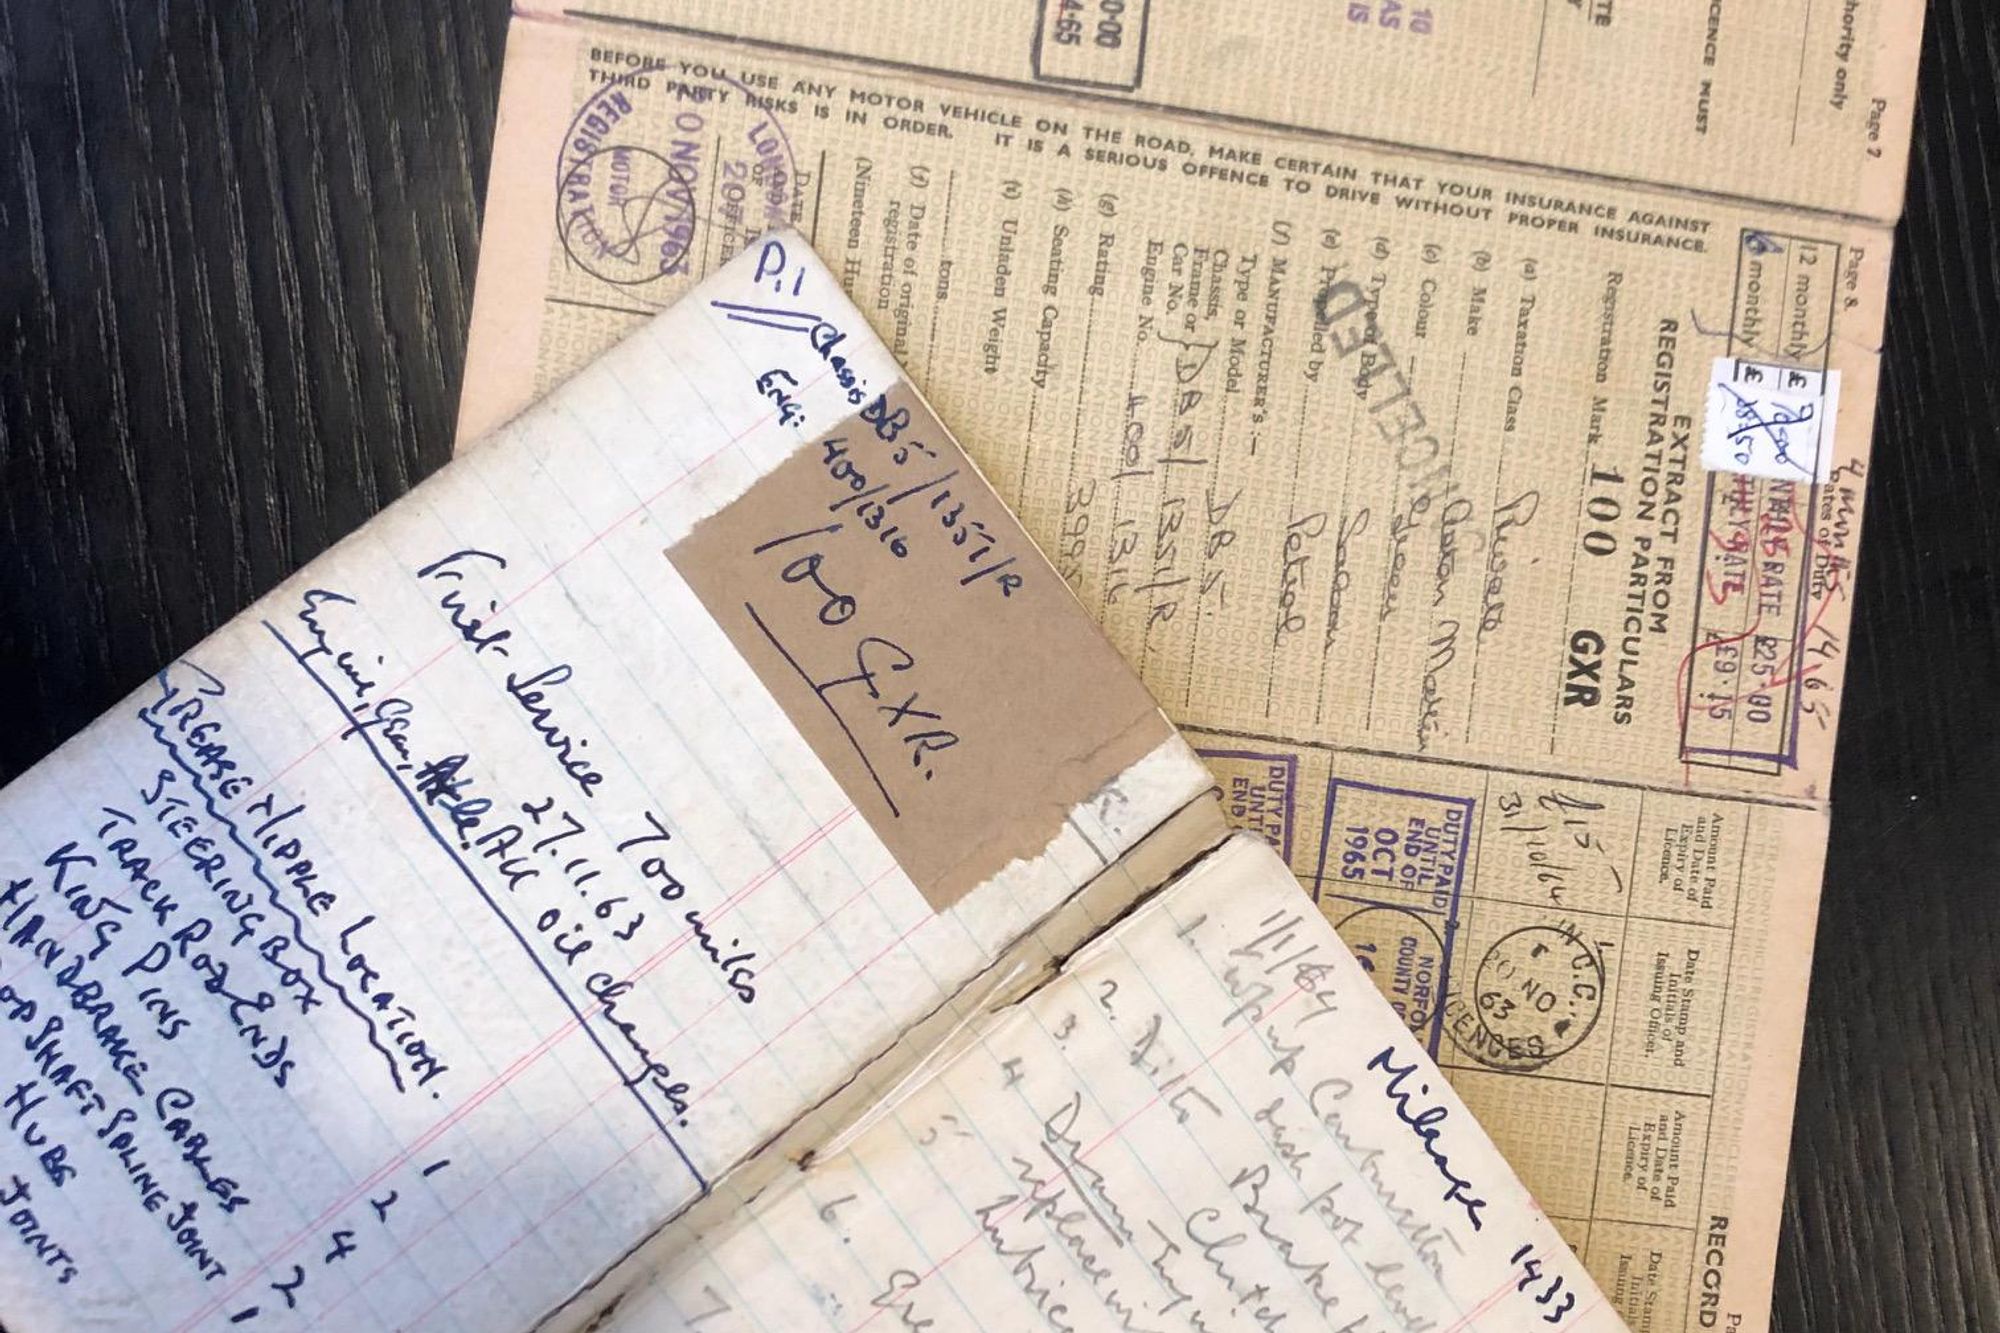 Page 7
hority only
ICENCE MUST
10
AS
IS
0·00
4·65
Page 8.
12 monthly £
6 monthly £
4 months 14/65
Rates of Duty
RATE £25·00
RATE £9·15
EXTRACT FROM
REGISTRATION PARTICULARS
Registration Mark 100 GXR
(a) Taxation Class Private
(b) Make Aston Martin
(c) Colour Green
(d) Type of Body Saloon
(e) Petrol
(f) MANUFACTURER'S :—
Type or Model DB5.
Chassis,
Frame or } DB5/1351/R
Car No.
Engine No. 400/1316
(g) Rating 3995
(h) Seating Capacity
(i) Unladen Weight
tons
(j) Date of original
registration
(Nineteen Hu
CANCELLED
BEFORE YOU USE ANY MOTOR VEHICLE ON THE ROAD, MAKE CERTAIN THAT YOUR INSURANCE AGAINST
THIRD PARTY RISKS IS IN ORDER. IT IS A SERIOUS OFFENCE TO DRIVE WITHOUT PROPER INSURANCE.
DATE
LONDON
MOTOR
REGISTRATION
20 NOV 1963
Amount Paid
and Date of
Expiry of
Licence.
Date Stamp and
Initials of
Issuing Officer.
Amount Paid
and Date of
Expiry of
Licence.
Date Stam
Initials
Issuing
RECORD
£15
31/10/64
N.C.C.
20 NO
63
DUTY PAID
UNTIL
END OF
OCT
1965
DUTY PA
UNTI
END
NORFO
COUNTY
P.1
Chassis DB5/1351/R
ENG: 400/1316
100 GXR.
First Service 700 miles
27.11.63
Engine, Gear, Axle. All oil changes.
GREASE NIPPLE LOCATION.
STEERING BOX 1
TRACK ROD ENDS 2
KING PINS 4
HANDBRAKE CABLES 2
OPSHAFT SPLINE JOINT 1
HUBS
JOINTS
Mileage 1433
1/1/64
1.
2. Ditto Clutch
3.
4
5
6.
7